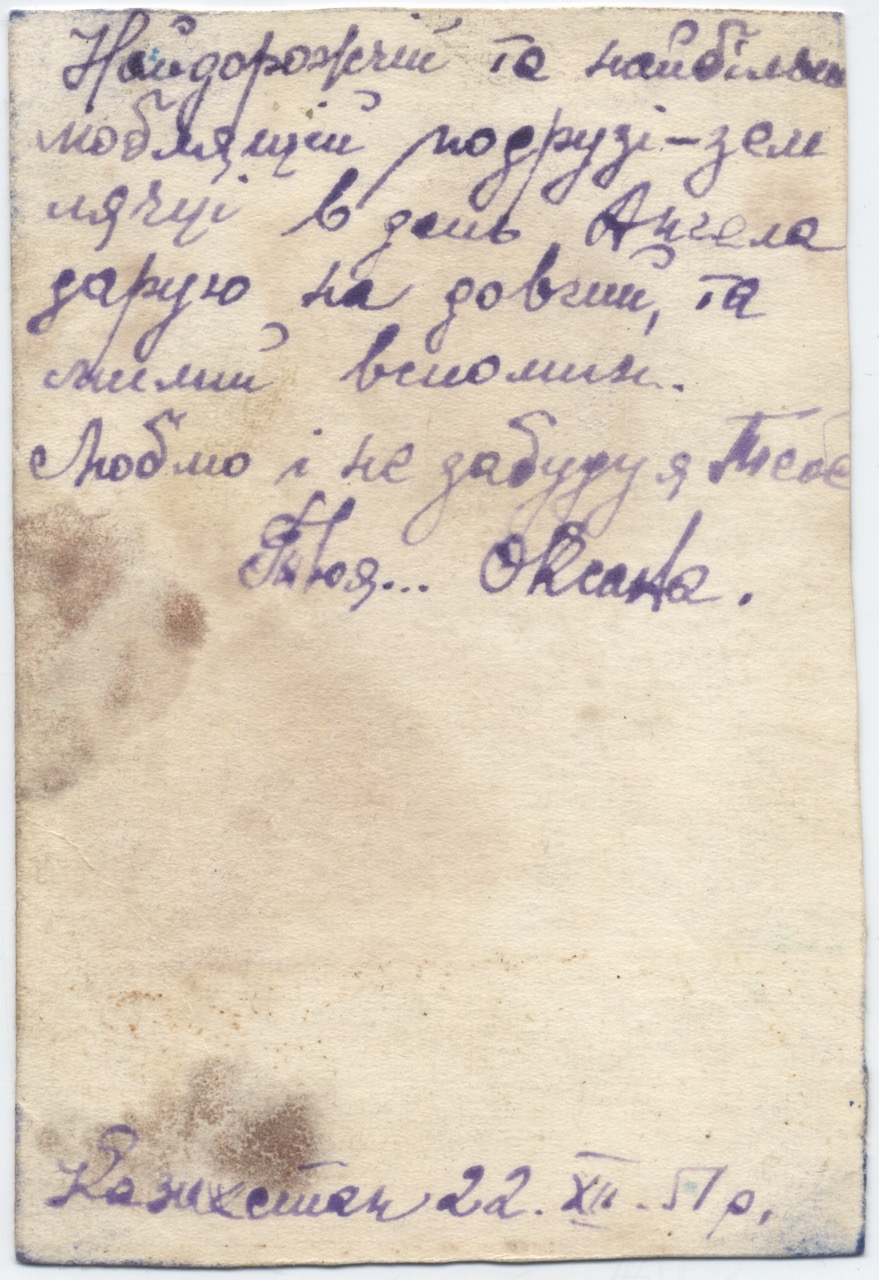 Найдорожчій та найбільш
люблящій подрузі-зем
лячці в день Ангела
дарую на довгий, та
милий вспомин.
Люблю і не забуду я Тебе
Твоя... Оксана.
Казахстан 22. XII. 51 р.